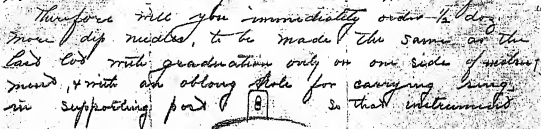 Therefore will you immediately order 1/2 doz
more dip needles, to be made the same as the
last lot with graduation only on one side of instru-
ment, & with an oblong hole for carrying ring
in supporting post so that instrument